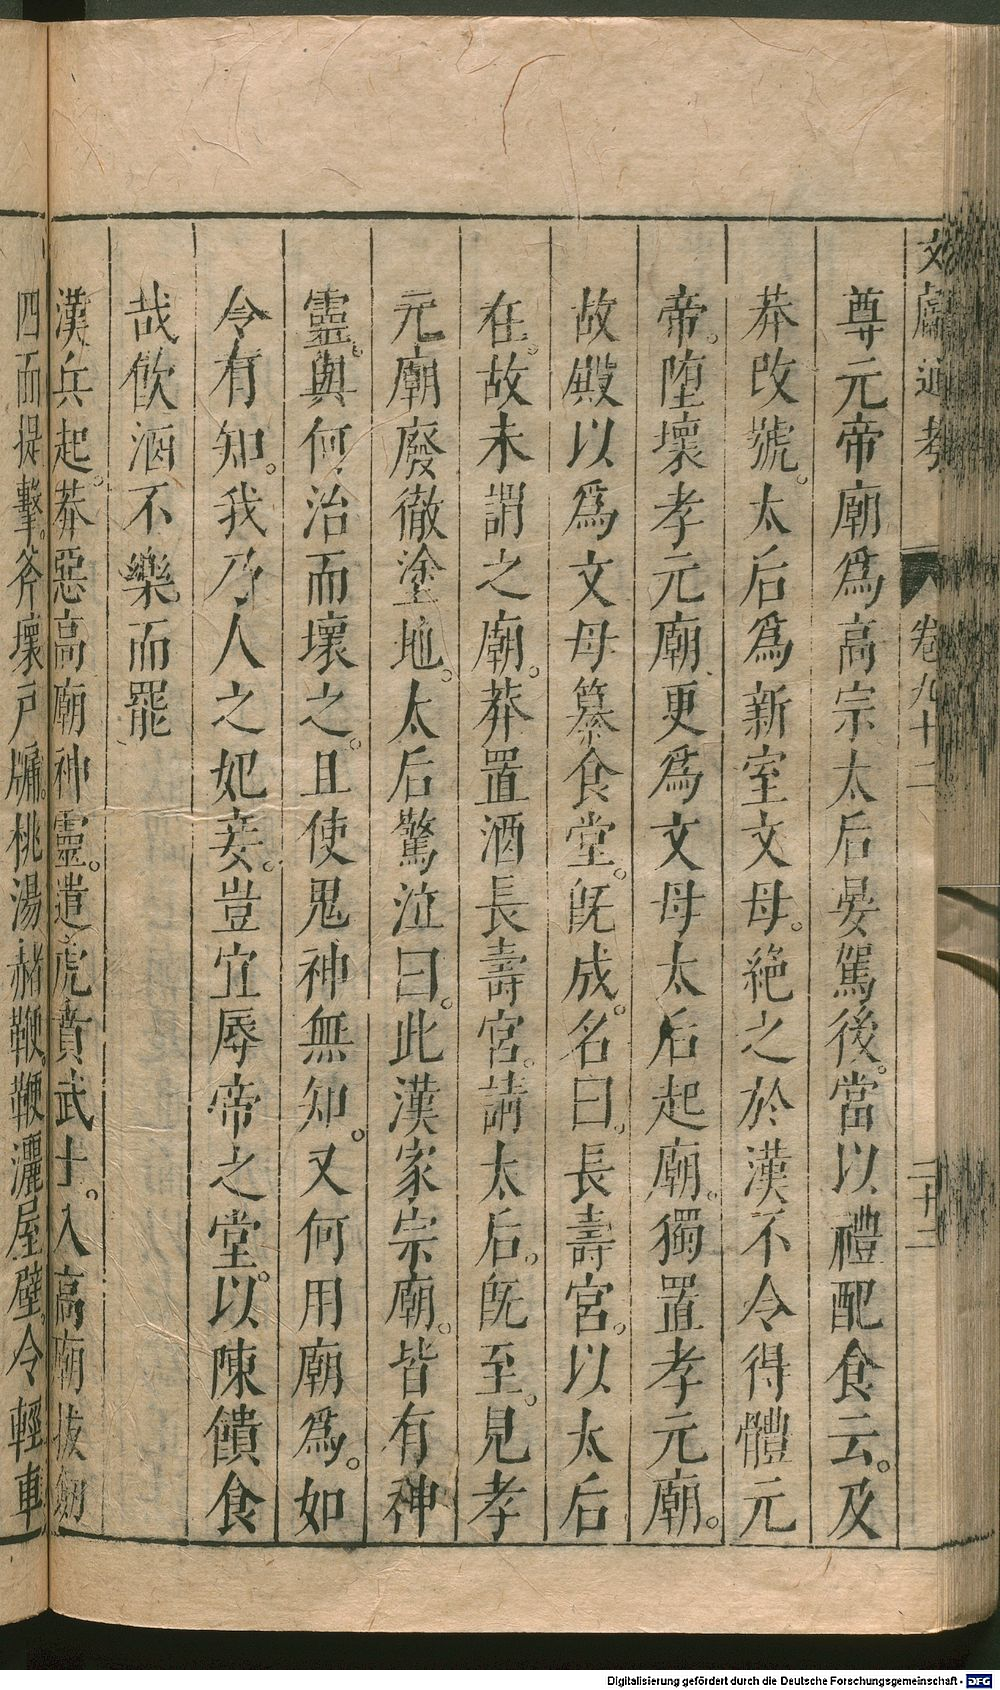 文獻通考 卷九十二 二十二
尊元帝廟爲高宗太后晏駕後。當以禮配食云。及
莽改號。太后爲新室文母。絶之於漢不令得體元
帝。墮壞孝元廟更爲文母太后起廟。獨置孝元廟。
故殿以爲文母篹食堂。旣成。名曰。長壽宮。以太后
在。故未謂之廟。莽置酒長壽宮。請太后。旣至。見孝
元廟廢徹塗地。太后驚泣曰。此漢家宗廟。皆有神
靈。與何治而壞之。且使鬼神無知。又何用廟爲。如
令有知。我乃人之妃妾。豈宜辱帝之堂。以陳饋食
哉飲酒不樂而罷
漢兵起。莽惡高廟神靈。遣虎賁武士。入高廟拔劒
四面提擊。斧壞戸牖。桃湯赭鞭。鞭灑屋壁。令輕車
Digitalisierung gefördert durch die Deutsche Forschungsgemeinschaft - DFG